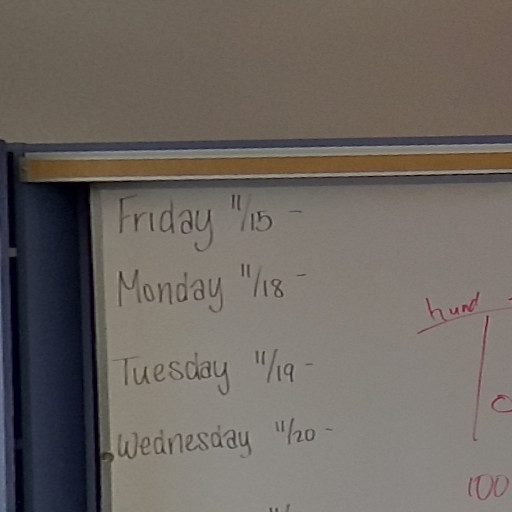 Friday 11/15 -
Monday 11/18 -
Tuesday 11/19 -
Wednesday 11/20 -
hund
100